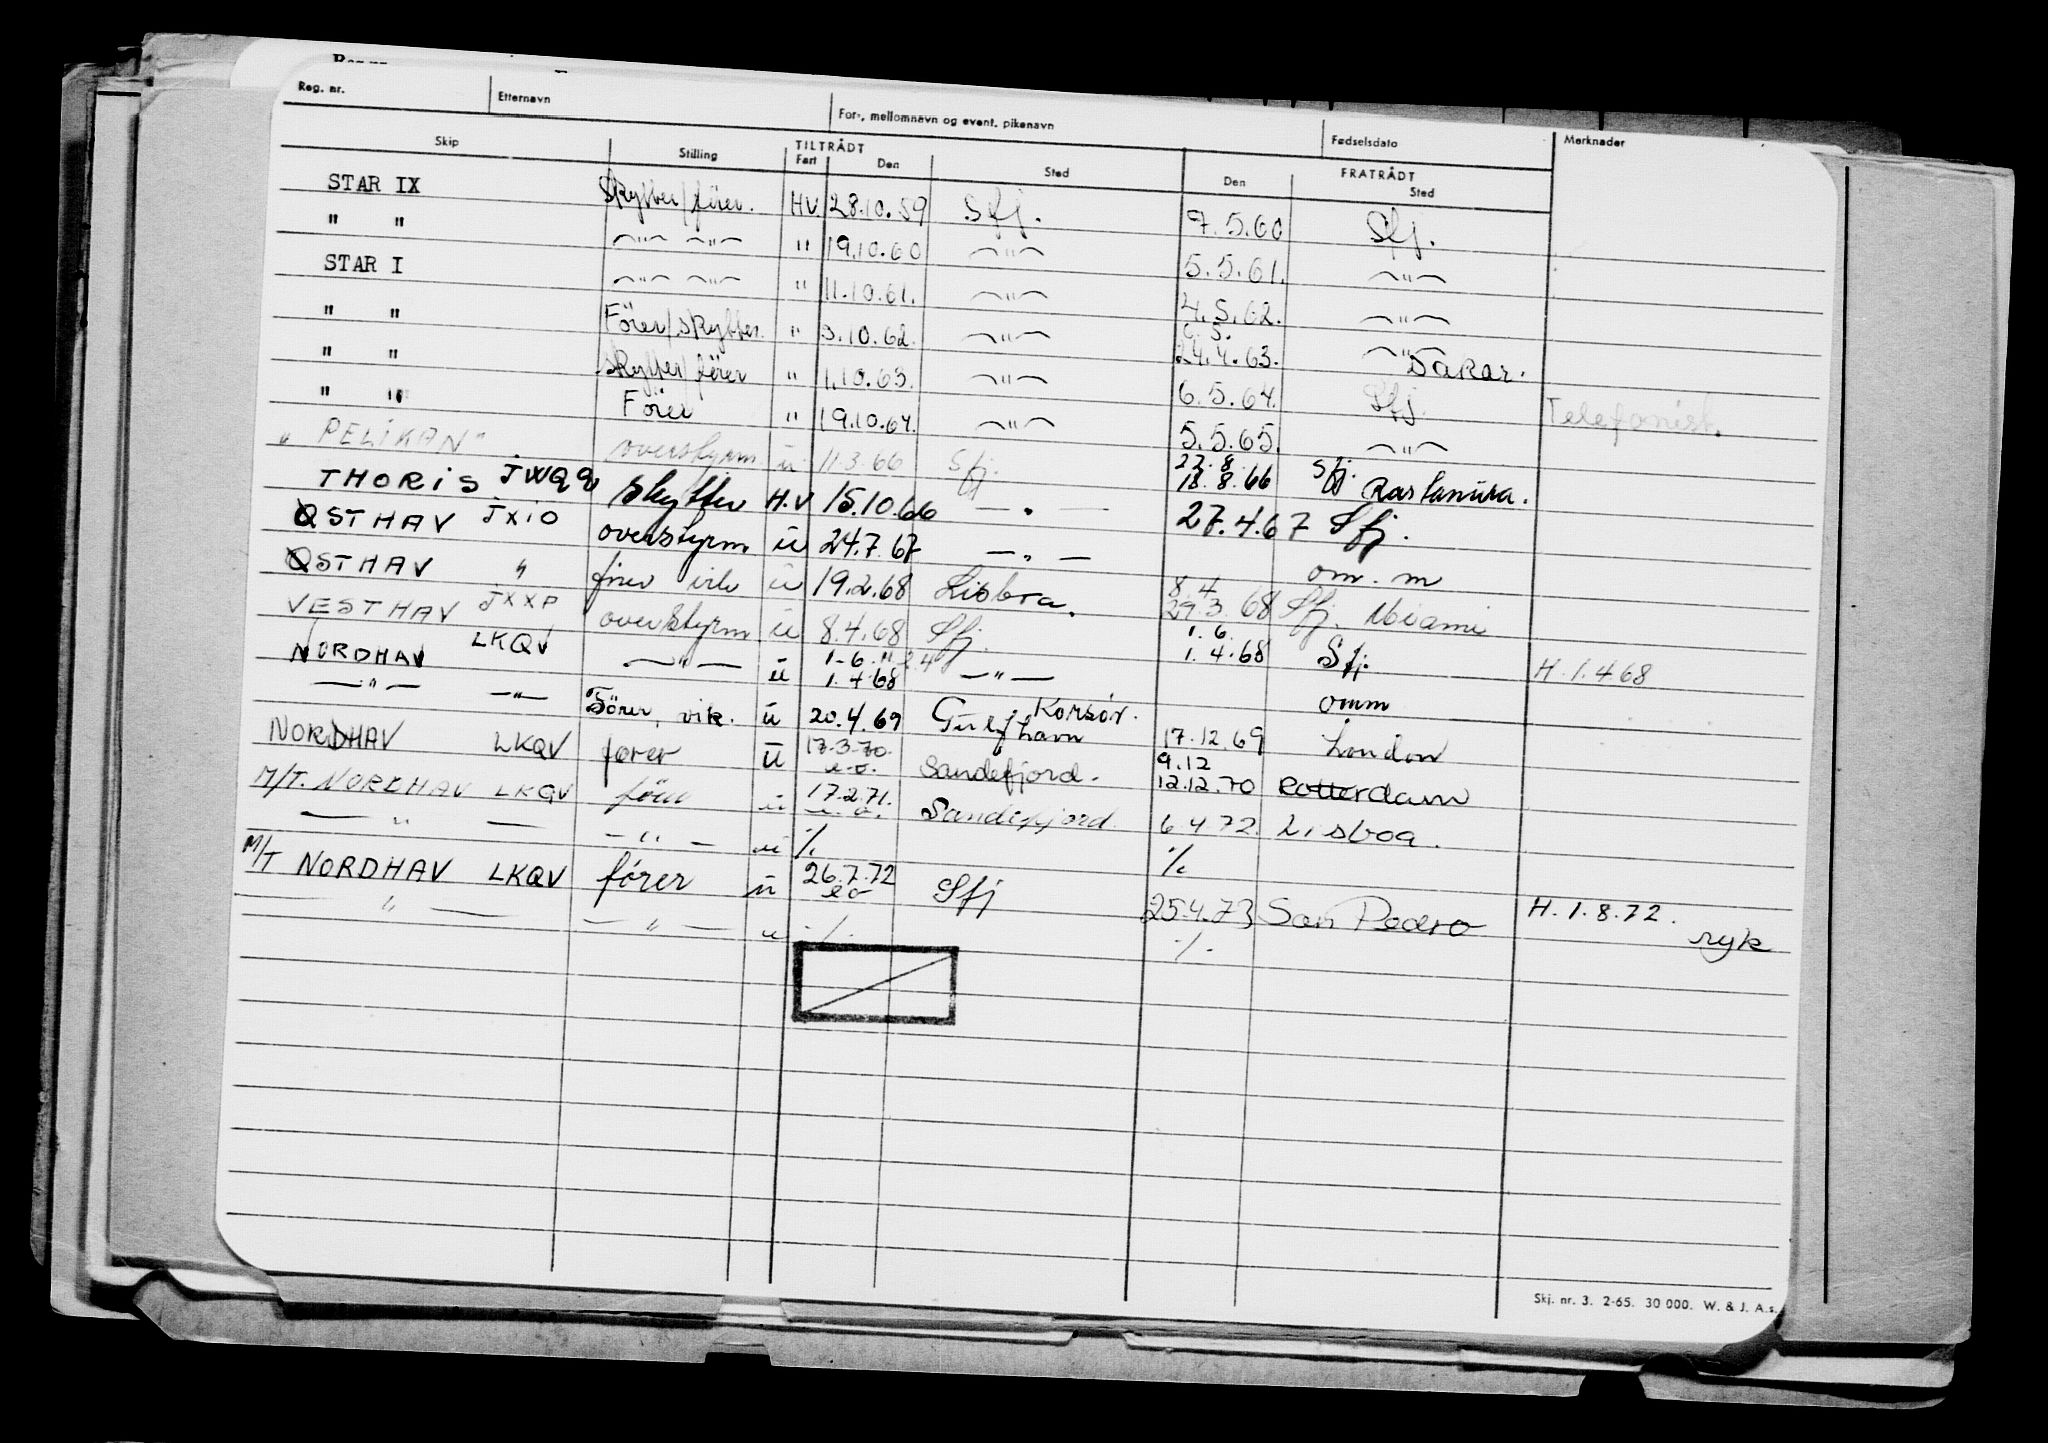 Reg. nr. Etternavn For-, mellomnavn og event. pikenavn Fødselsdato Merknader
Skip Stilling TILTRÅDT FRATRÅDT
Fart Den Sted Den Sted
STAR IX Skytter/förer. HV 28.10.59 Sfj. 7.5.60 Sfj.
" " —"— —"— " 19.10.60 —"— 5.5.61. —"—
STAR I —"— —"— " 11.10.61. —"— 4.5.62. —"—
" " Förer/skytter. " 3.10.62. —"— 6.5. 24.4.63. —"— Dakar.
" " skytter/förer " 1.10.63. —"— 6.5.64. Sfj. Telefonist.
" " Förer " 19.10.64. —"— 5.5.65. —"—
"PELIKAN" overstyrm u 11.3.66 Sfj. 22.8. 18.8.66 Sfj. Rastanura.
THORIS JWQQ skytter H.V 15.10.66 — " — 27.4.67 Sfj.
ØSTHAV JXIO overstyrm u 24.7.67 — " — om. m
ØSTHAV " förer vik u 19.2.68 Lisboa. 8.4 29.3.68 Sfj. Miami
VESTHAV JXXP overstyrm u 8.4.68 Sfj. 1.6. 1.4.68 Sfj. H. 1.4 68
NORDHAV LKQV —"— u 1-6. " 2.4 1.4.68 —"— omm
—"— —"— Förer, vik. u 20.4.69 Gulfhavn Korsör. 17.12.69 London
NORDHAV LKQV förer u 17-3-70. u.o. Sandefjord. 9.12 12.12.70 Rotterdam
M/T. NORDHAV LKQV förer u 17.2.71. u.o. Sandefjord 6.4.72. Lisboa.
— " — — " — u ./. ./.
M/T NORDHAV LKQV förer u 26.7.72 eo Sfj 25.4.73 San Pedro H. 1.8.72. ryk
— " — — " — u ./. ./.
Skj. nr. 3. 2-65. 30 000. W. & J. A.s.